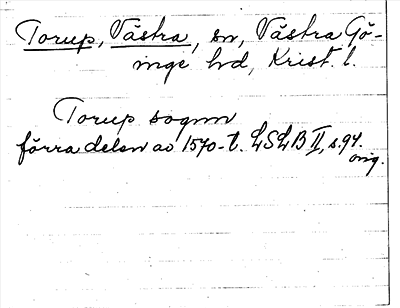 Torup, Västra, sn, Västra Gö-
inge hd, Krist. l.
Torup sognn
förra delen av 1570-t. LSLB II, s. 94.
orig.